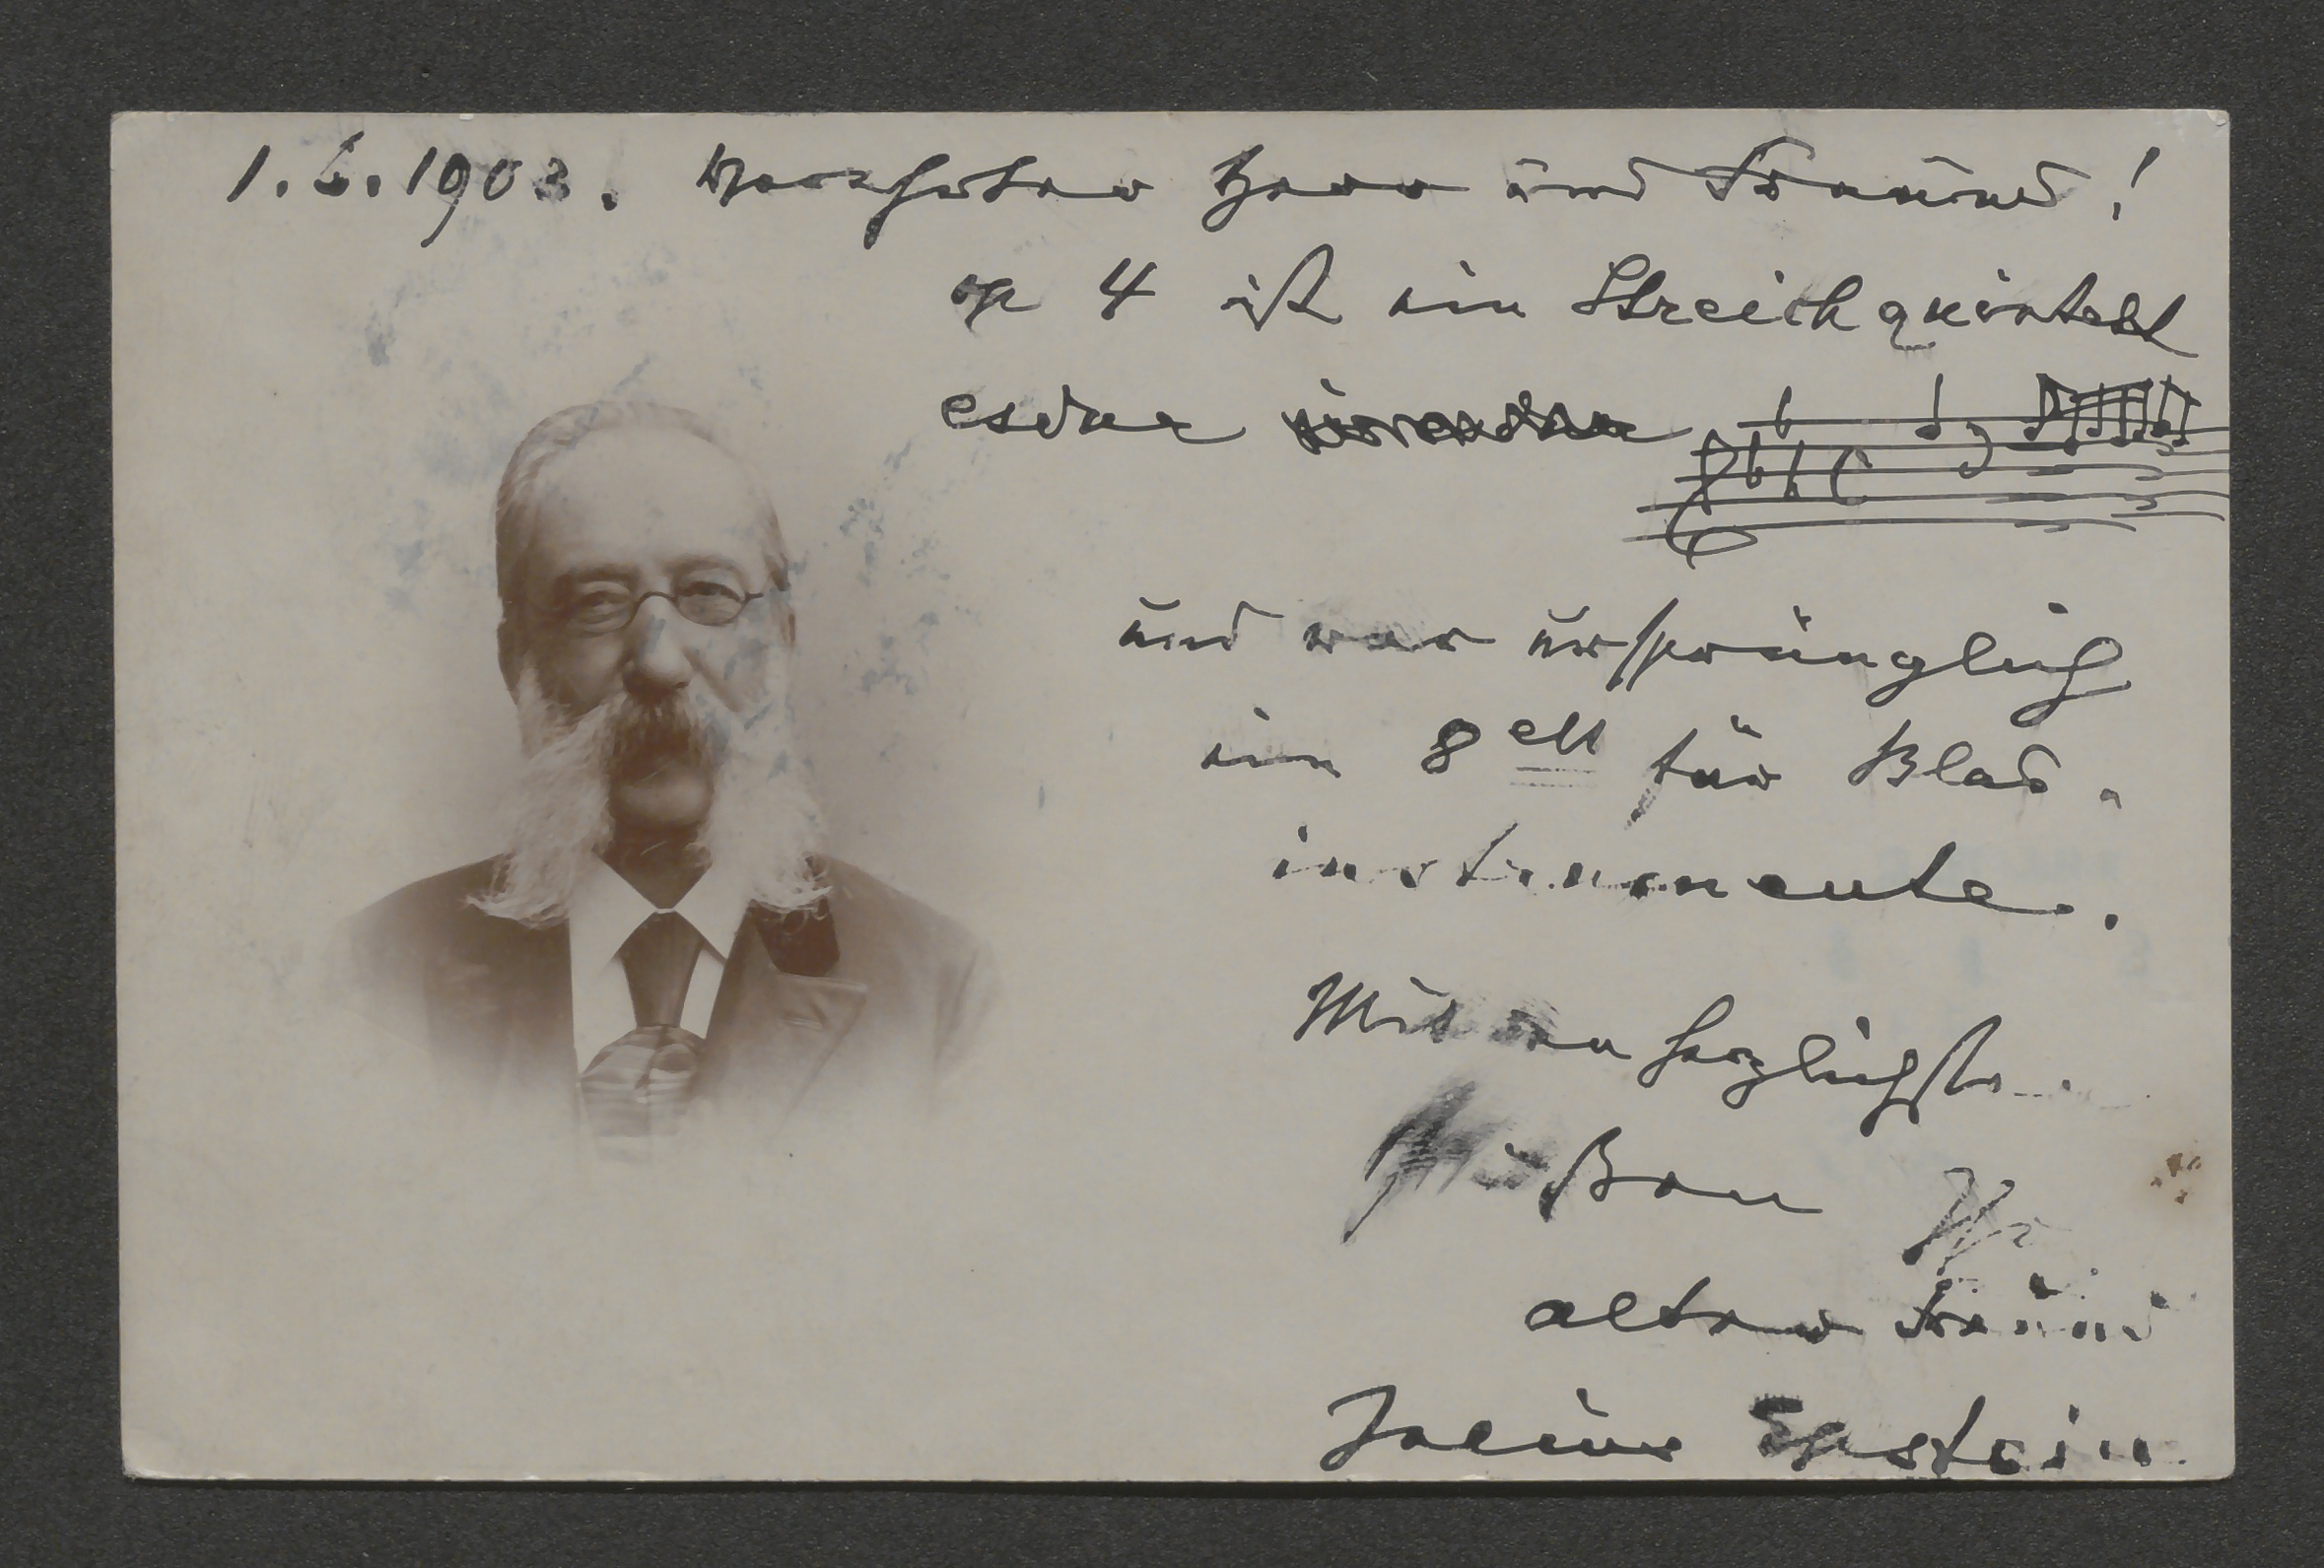 1.6.1903. Verehrter Herr und Freund!
op 4 ist ein Streichquintett
esdur
und war ursprünglich
ein 8tett für Blas-
instrumente.
Mit den herzlichsten
Grüßen Ihr
alter Freund
Julius Epstein